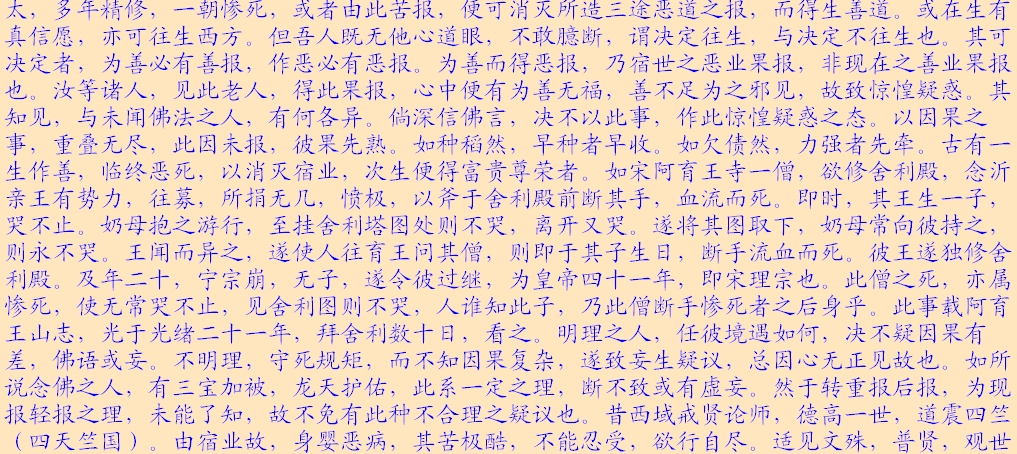 太，多年精修，一朝惨死，或者由此苦报，便可消灭所造三途恶道之报，而得生善道。或在生有
真信愿，亦可往生西方。但吾人既无他心道眼，不敢臆断，谓决定往生，与决定不往生也。其可
决定者，为善必有善报，作恶必有恶报。为善而得恶报，乃宿世之恶业果报，非现在之善业果报
也。汝等诸人，见此老人，得此果报，心中便有为善无福，善不足为之邪见，故致惊惶疑惑。其
知见，与未闻佛法之人，有何各异。倘深信佛言，决不以此事，作此惊惶疑惑之态。以因果之
事，重叠无尽，此因未报，彼果先熟。如种稻然，早种者早收。如欠债然，力强者先牵。古有一
生作善，临终恶死，以消灭宿业，次生便得富贵尊荣者。如宋阿育王寺一僧，欲修舍利殿，念沂
亲王有势力，往募，所捐无几，愤极，以斧于舍利殿前断其手，血流而死。即时，其王生一子，
哭不止。奶母抱之游行，至挂舍利塔图处则不哭，离开又哭。遂将其图取下，奶母常向彼持之，
则永不哭。王闻而异之，遂使人往育王问其僧，则即于其子生日，断手流血而死。彼王遂独修舍
利殿。及年二十，宁宗崩，无子，遂令彼过继，为皇帝四十一年，即宋理宗也。此僧之死，亦属
惨死，使无常哭不止，见舍利图则不哭，人谁知此子，乃此僧断手惨死者之后身乎。此事载阿育
王山志，光于光绪二十一年，拜舍利数十日，看之。明理之人，任彼境遇如何，决不疑因果有
差，佛语或妄。不明理，守死规矩，而不知因果复杂，遂致妄生疑议，总因心无正见故也。如所
说念佛之人，有三宝加被，龙天护佑，此系一定之理，断不致或有虚妄。然于转重报后报，为现
报轻报之理，未能了知，故不免有此种不合理之疑议也。昔西域戒贤论师，德高一世，道震四竺
（四天竺国）。由宿业故，身婴恶病，其苦极酷，不能忍受，欲行自尽。适见文殊，普贤，观世